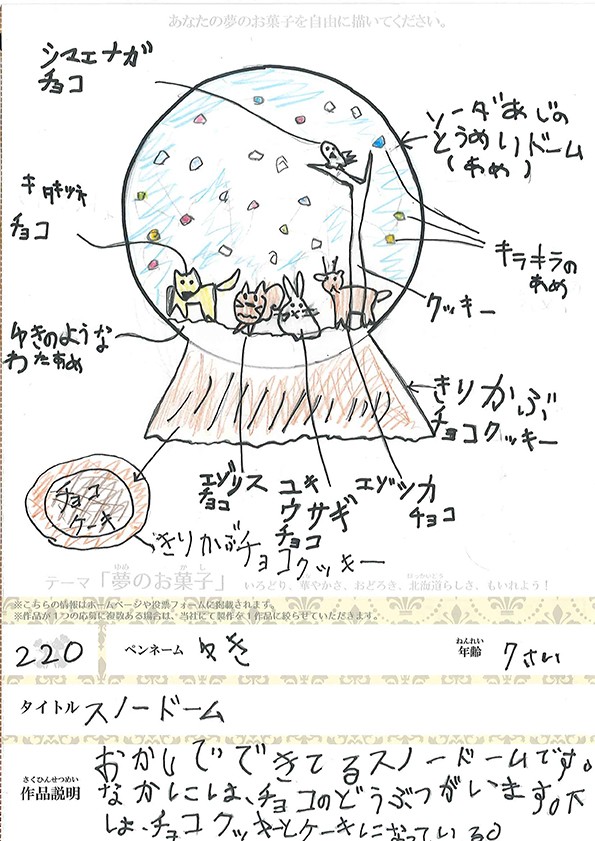 あなたの夢のお菓子を自由に描いてください。
シマエナガ
チョコ
ソーダあじの
とうめいドーム
(あめ)
キタキツネ
チョコ
キラキラの
あめ
クッキー
ゆきのような
わたあめ
きりかぶ
チョコクッキー
エゾリス
チョコ
ユキ
ウサギ
チョコ
エゾシカ
チョコ
チョコ
ケーキ
きりかぶチョコクッキー
テーマ「夢のお菓子」 いろどり、華やかさ、おどろき、北海道らしさ、もいれよう!
ゆめ かし ほっかいどう
※こちらの情報はホームページや投票フォームに掲載されます。
※作品が1つの応募に複数ある場合は、当社にて製作を1作品に絞らせていただきます。
220 ペンネーム ゆき 年齢 7さい
ねんれい
タイトル スノードーム
さくひんせつめい
作品説明
おかしでできてるスノードームです。
なかには、チョコのどうぶつがいます。下
は、チョコクッキーとケーキになっている。